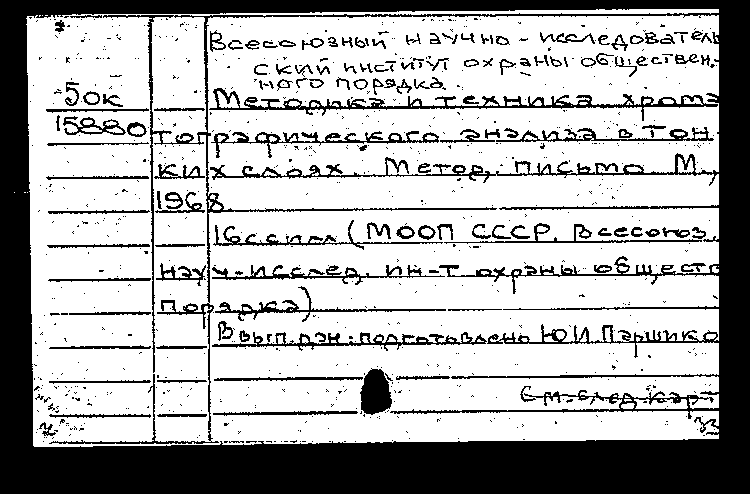 Всесоюзный научно-исследователь
ский институт охраны обществен-
ного порядка.
5ок
15880
Методика и техника хрома
тографического анализа в тон-
ких слоях. Метод. письмо. М.,
1968
16с с илл (МООП СССР. Всесоюз.
науч-исслед. ин-т охраны обществ
порядка)
В вып. дан.: подготовлено Ю.И. Паршико
См. след карт
33